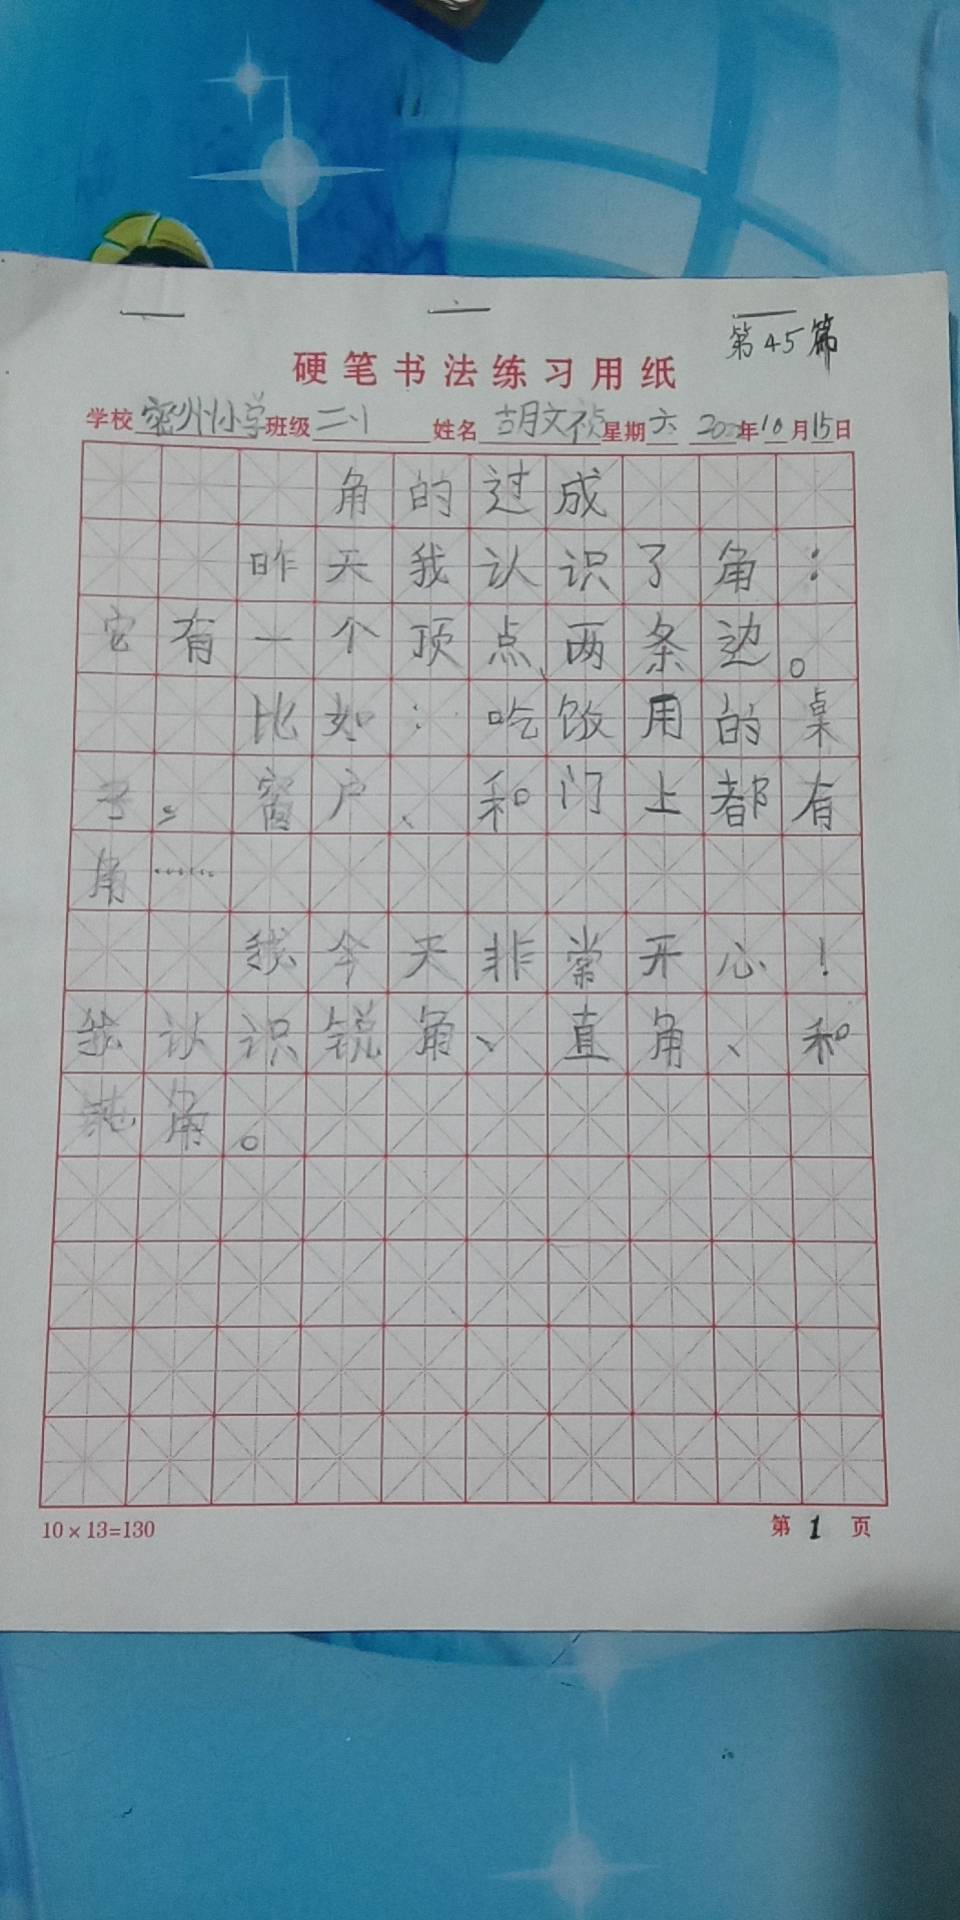 第45篇
硬笔书法练习用纸
学校密州小学班级二·1 姓名胡文祯星期六 2022年10月15日
角的过成
昨天我认识了角：
它有一个顶点、两条边。
比如：吃饭用的桌
子。窗户、和门上都有
角……
我今天非常开心！
我认识锐角、直角、和
钝角。
10×13=130
第1页